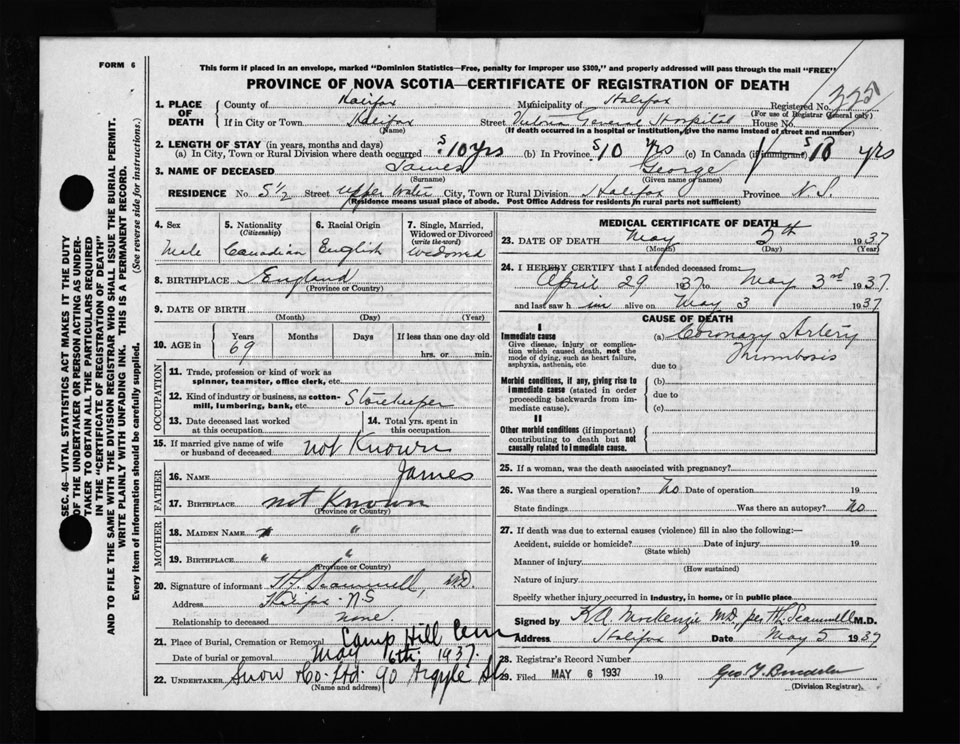 FORM 6
This form if placed in an envelope, marked "Dominion Statistics—Free, penalty for improper use $300," and properly addressed will pass through the mail "FREE"
PROVINCE OF NOVA SCOTIA—CERTIFICATE OF REGISTRATION OF DEATH
1. PLACE OF DEATH
County of Halifax Municipality of Halifax Registered No. 225
(For use of Registrar General only)
If in City or Town Halifax Street Victoria General Hospital House No.
(Name) (If death occurred in a hospital or institution, give the name instead of street and number)
2. LENGTH OF STAY (in years, months and days)
(a) In City, Town or Rural Division where death occurred 10 yrs (b) In Province 10 yrs (c) In Canada (if immigrant) 10 yrs
3. NAME OF DECEASED James George
(Surname) (Given name or names)
RESIDENCE No. 5 1/2 Street Upper Water City, Town or Rural Division Halifax Province N.S.
(Residence means usual place of abode. Post Office Address for residents in rural parts not sufficient)
4. Sex
Male
5. Nationality
(Citizenship)
Canadian
6. Racial Origin
English
7. Single, Married, Widowed or Divorced
(write the word)
Widowed
8. BIRTHPLACE England
(Province or Country)
9. DATE OF BIRTH
(Month) (Day) (Year)
10. AGE in Years Months Days If less than one day old
69 hrs. or min.
OCCUPATION
11. Trade, profession or kind of work as
spinner, teamster, office clerk, etc.
12. Kind of industry or business, as cotton-
mill, lumbering, bank, etc. Storekeeper
13. Date deceased last worked at this occupation
14. Total yrs. spent in this occupation
15. If married give name of wife
or husband of deceased not Known
FATHER
16. NAME James
17. BIRTHPLACE not Known
(Province or Country)
MOTHER
18. MAIDEN NAME " "
19. BIRTHPLACE " "
(Province or Country)
20. Signature of informant H. Scammell, M.D.
Address Halifax - N S
Relationship to deceased none.
21. Place of Burial, Cremation or Removal Camp Hill Cem
Date of burial or removal May 6th, 1937.
22. UNDERTAKER Snow & Co. Ltd. 90 Argyle St.
(Name and address)
MEDICAL CERTIFICATE OF DEATH
23. DATE OF DEATH May 1937
(Month) (Day) (Year)
24. I HEREBY CERTIFY that I attended deceased from:
April 29 1937 to May 3rd 1937
and last saw him alive on May 3 1937
CAUSE OF DEATH
I
Immediate cause
Give disease, injury or complica-
tion which caused death, not the
mode of dying, such as heart failure,
asphyxia, asthenia, etc.
(a) Coronary Artery
Thrombosis
due to
Morbid conditions, if any, giving rise to
immediate cause (stated in order
proceeding backwards from im-
mediate cause).
(b)
due to
(c)
II
Other morbid conditions (if important)
contributing to death but not
causally related to immediate cause.
25. If a woman, was the death associated with pregnancy?
26. Was there a surgical operation? no Date of operation 19
State findings Was there an autopsy? no
27. If death was due to external causes (violence) fill in also the following:—
Accident, suicide or homicide? Date of injury 19
(State which)
Manner of injury
(How sustained)
Nature of injury
Specify whether injury occurred in industry, in home, or in public place
Signed by K.A. MacKenzie M.D., per H. Scammell M.D.
Address Halifax Date May 5 1937
28. Registrar's Record Number
29. Filed MAY 6 1937 19
(Division Registrar).
SEC. 46—VITAL STATISTICS ACT MAKES IT THE DUTY
OF THE UNDERTAKER OR PERSON ACTING AS UNDER-
TAKER TO OBTAIN ALL THE PARTICULARS REQUIRED
IN THE "CERTIFICATE OF REGISTRATION OF DEATH"
AND TO FILE THE SAME WITH THE DIVISION REGISTRAR WHO SHALL ISSUE THE BURIAL PERMIT.
WRITE PLAINLY WITH UNFADING INK. THIS IS A PERMANENT RECORD.
Every item of information should be carefully supplied. (See reverse side for instructions.)